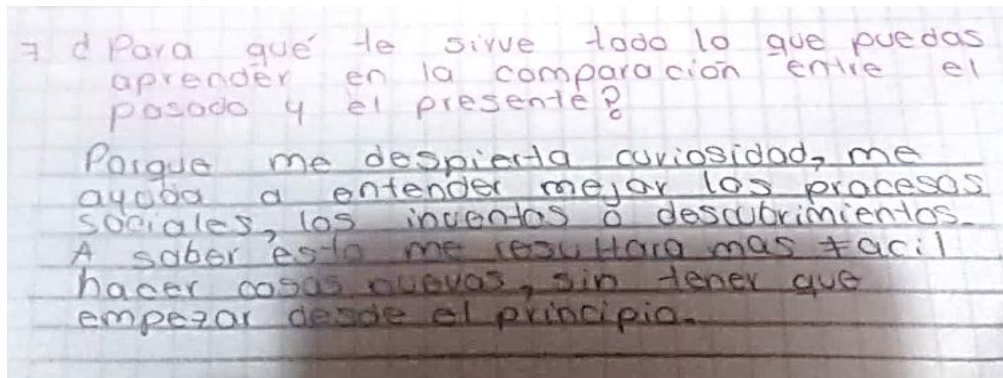 7 ¿Para qué te sirve todo lo que puedas
aprender en la comparación entre el
pasado y el presente?
Porque me despierta curiosidad, me
ayuda a entender mejor los procesos
sociales, los inventos o descubrimientos.
A saber esto me resultara mas facil
hacer cosas nuevas, sin tener que
empezar desde el principio.